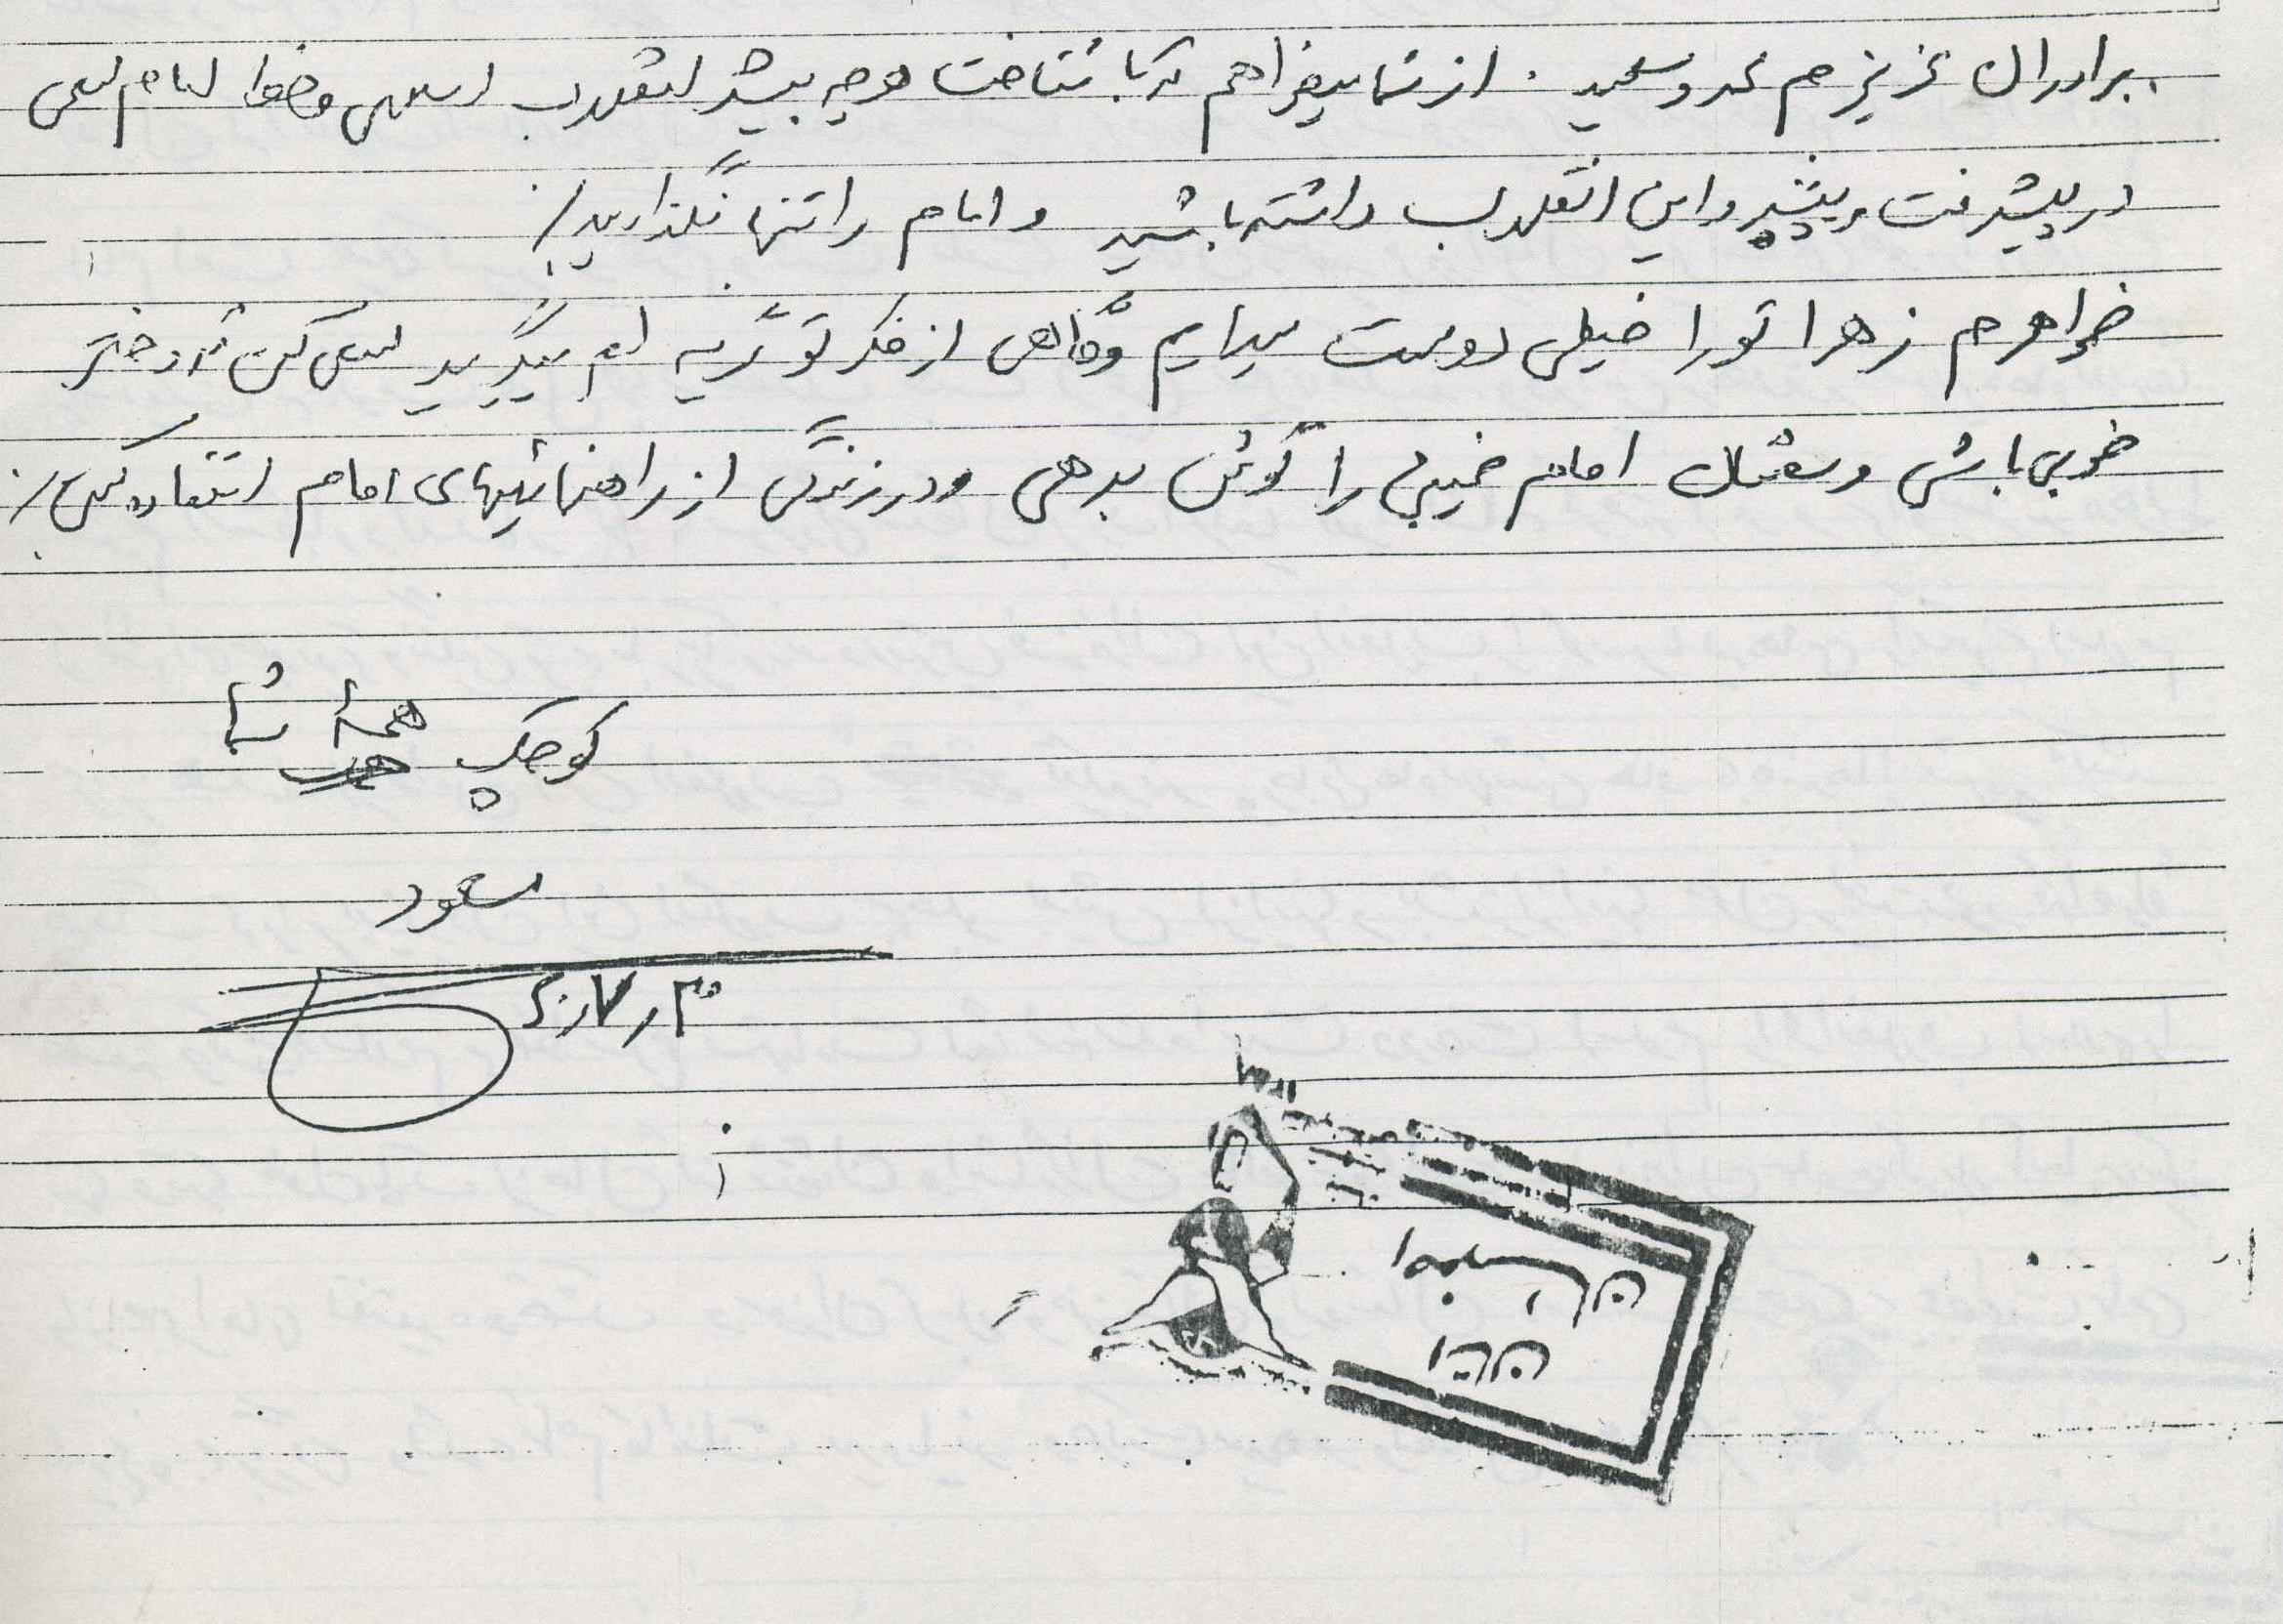 برادران عزیزم محمد و سعید . از شما میخواهم که با شناخت هرچه بیشتر انقلاب اسلامی و خط امام سعی
در پیشرفت و پیشبرد این انقلاب داشته باشید و امام را تنها نگذارید /.
خواهرم زهرا تو را خیلی دوست میدارم و گاهی از فکر تو گریه ام میگیرد سعی کن تو دختر
خوبی باشی و سخنان امام خمینی را گوش بدهی و در زندگی از راهنمائیهای امام استفاده کنی /.
کوچک همهٔ شما
مسعود
۶۰٫۷٫۳۰